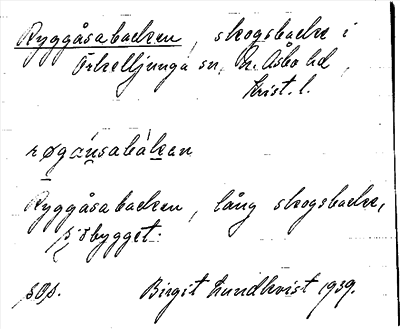 Ryggåsabacken, skogsbacke i
Örkelljunga sn, N. Åsbo hd,
Krist. l.
røgåu̲sabàk̲an
Ryggåsabacken, lång skogsbacke,
på obygget.
sos. Birgit Lundkvist 1939.